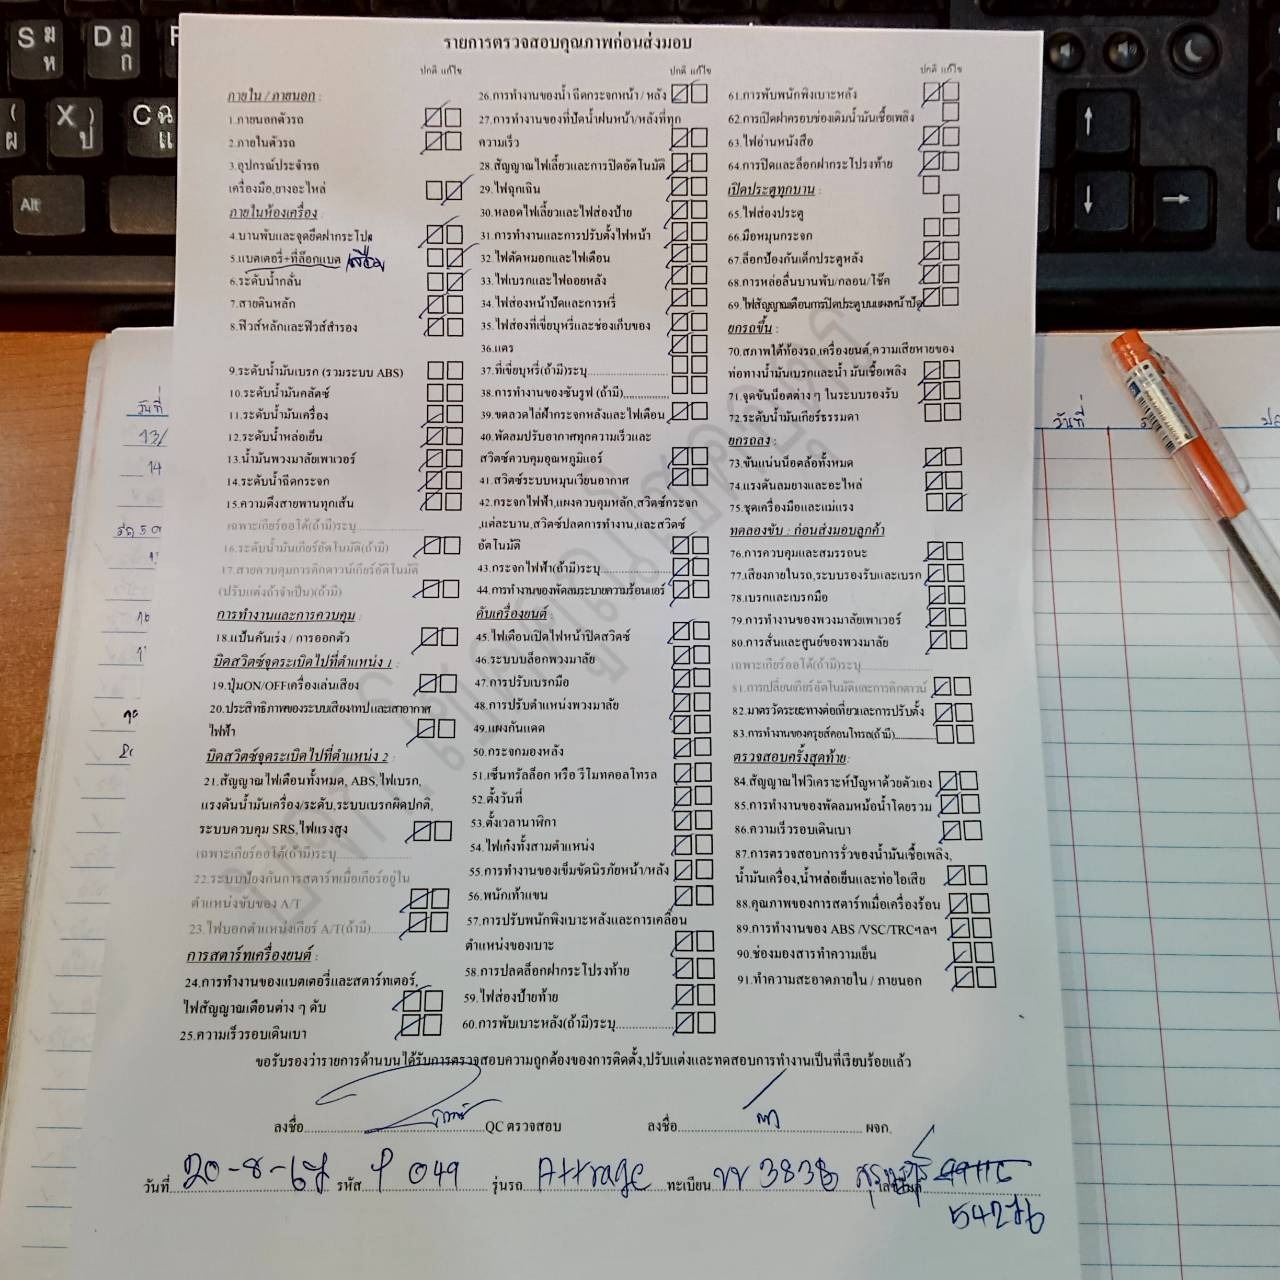 รายการตรวจสอบคุณภาพก่อนส่งมอบ
ปกติ แก้ไข
ภายใน / ภายนอก :
1.ภายนอกตัวรถ
2.ภายในตัวรถ
3.อุปกรณ์ประจำรถ
เครื่องมือ,ยางอะไหล่
ภายในห้องเครื่อง :
4.บานพับและจุดยึดฝากระโปร
5.แบตเตอรี่+ที่ล๊อกแบต
6.ระดับน้ำกลั่น
7.สายดินหลัก
8.ฟิวส์หลักและฟิวส์สำรอง
9.ระดับน้ำมันเบรก (รวมระบบ ABS)
10.ระดับน้ำมันคลัตช์
11.ระดับน้ำมันเครื่อง
12.ระดับน้ำหล่อเย็น
13.น้ำมันพวงมาลัยเพาเวอร์
14.ระดับน้ำฉีดกระจก
15.ความตึงสายพานทุกเส้น
เฉพาะเกียร์ออโต้(ถ้ามี)ระบุ
16.ระดับน้ำมันเกียร์อัตโนมัติ(ถ้ามี)
17.สายควบคุมการคิกดาวน์เกียร์อัติโนมัติ
(ปรับแต่งถ้าจำเป็น)(ถ้ามี)
การทำงานและการควบคุม :
18.แป้นคันเร่ง / การออกตัว
บิดสวิตช์จุดระเบิดไปที่ตำแหน่ง 1 :
19.ปุ่มON/OFFเครื่องเล่นเสียง
20.ประสิทธิภาพของระบบเสียง/เทปและเสาอากาศ
ไฟฟ้า
บิดสวิตช์จุดระเบิดไปที่ตำแหน่ง 2 :
21.สัญญาณไฟเตือนทั้งหมด, ABS,ไฟเบรก,
แรงดันน้ำมันเครื่อง/ระดับ,ระบบเบรกผิดปกติ,
ระบบควบคุม SRS,ไฟแรงสูง
เฉพาะเกียร์ออโต้(ถ้ามี)ระบุ
22.ระบบป้องกันการสตาร์ทเมื่อเกียร์อยู่ใน
ตำแหน่งขับของ A/T
23.ไฟบอกตำแหน่งเกียร์ A/T(ถ้ามี)
การสตาร์ทเครื่องยนต์ :
24.การทำงานของแบตเตอรี่และสตาร์ทเตอร์,
ไฟสัญญาณเตือนต่าง ๆ ดับ
25.ความเร็วรอบเดินเบา
ปกติ แก้ไข
26.การทำงานของน้ำ ฉีดกระจกหน้า / หลัง
27.การทำงานของที่ปัดน้ำฝนหน้า/หลังที่ทุก
ความเร็ว
28.สัญญาณไฟเลี้ยวและการปิดอัตโนมัติ
29.ไฟฉุกเฉิน
30.หลอดไฟเลี้ยวและไฟส่องป้าย
31.การทำงานและการปรับตั้งไฟหน้า
32.ไฟตัดหมอกและไฟเตือน
33.ไฟเบรกและไฟถอยหลัง
34.ไฟส่องหน้าปัดและการหรี่
35.ไฟส่องที่เขี่ยบุหรี่และช่องเก็บของ
36.แตร
37.ที่เขี่ยบุหรี่(ถ้ามี)ระบุ
38.การทำงานของซันรูฟ (ถ้ามี)
39.ขดลวดไล่ฝ้ากระจกหลังและไฟเตือน
40.พัดลมปรับอากาศทุกความเร็วและ
สวิตช์ควบคุมอุณหภูมิแอร์
41.สวิตช์ระบบหมุนเวียนอากาศ
42.กระจกไฟฟ้า,แผงควบคุมหลัก,สวิตช์กระจก
,แต่ละบาน,สวิตช์ปลดการทำงาน,และสวิตช์
อัตโนมัติ
43.กระจกไฟฟ้า(ถ้ามี)ระบุ
44.การทำงานของพัดลมระบายความร้อนแอร์
ดับเครื่องยนต์ :
45.ไฟเตือนเปิดไฟหน้าปิดสวิตช์
46.ระบบบล็อกพวงมาลัย
47.การปรับเบรกมือ
48.การปรับตำแหน่งพวงมาลัย
49.แผงกันแดด
50.กระจกมองหลัง
51.เซ็นทรัลล็อก หรือ รีโมทคอลโทรล
52.ตั้งวันที่
53.ตั้งเวลานาฬิกา
54.ไฟเก๋งทั้งสามตำแหน่ง
55.การทำงานของเข็มขัดนิรภัยหน้า/หลัง
56.พนักเท้าแขน
57.การปรับพนักพิงเบาะหลังและการเคลื่อน
ตำแหน่งของเบาะ
58.การปลดล็อกฝากระโปรงท้าย
59.ไฟส่องป้ายท้าย
60.การพับเบาะหลัง(ถ้ามี)ระบุ
ปกติ แก้ไข
61.การพับพนักพิงเบาะหลัง
62.การเปิดฝาครอบช่องเติมน้ำมันเชื้อเพลิง
63.ไฟอ่านหนังสือ
64.การปิดและล็อกฝากระโปรงท้าย
เปิดประตูทุกบาน :
65.ไฟส่องประตู
66.มือหมุนกระจก
67.ล็อกป้องกันเด็กประตูหลัง
68.การหล่อลื่นบานพับ/กลอน/โช๊ค
69.ไฟสัญญาณเตือนการปิดประตูบนแผงหน้าปัด
ยกรถขึ้น :
70.สภาพใต้ท้องรถ,เครื่องยนต์,ความเสียหายของ
ท่อทางน้ำมันเบรกและน้ำ มันเชื้อเพลิง
71.จุดขันน็อตต่าง ๆ ในระบบรองรับ
72.ระดับน้ำมันเกียร์ธรรมดา
ยกรถลง :
73.ขันแน่นน็อตล้อทั้งหมด
74.แรงดันลมยางและอะไหล่
75.ชุดเครื่องมือและแม่แรง
ทดลองขับ : ก่อนส่งมอบลูกค้า
76.การควบคุมและสมรรถนะ
77.เสียงภายในรถ,ระบบรองรับและเบรก
78.เบรกและเบรกมือ
79.การทำงานของพวงมาลัยเพาเวอร์
80.การสั่นและศูนย์ของพวงมาลัย
เฉพาะเกียร์ออโต้(ถ้ามี)ระบุ
81.การเปลี่ยนเกียร์อัตโนมัติและการคิกดาวน์
82.มาตรวัดระยะทางต่อเที่ยวและการปรับตั้ง
83.การทำงานของครุยส์คอนโทรล(ถ้ามี)
ตรวจสอบครั้งสุดท้าย:
84.สัญญาณไฟวิเคราะห์ปัญหาด้วยตัวเอง
85.การทำงานของพัดลมหม้อน้ำโดยรวม
86.ความเร็วรอบเดินเบา
87.การตรวจสอบการรั่วของน้ำมันเชื้อเพลิง,
น้ำมันเครื่อง,น้ำหล่อเย็นและท่อไอเสีย
88.คุณภาพของการสตาร์ทเมื่อเครื่องร้อน
89.การทำงานของ ABS /VSC/TRCฯลฯ
90.ช่องมองสารทำความเย็น
91.ทำความสะอาดภายใน / ภายนอก
ขอรับรองว่ารายการด้านบนได้รับการตรวจสอบความถูกต้องของการติดตั้ง,ปรับแต่งและทดสอบการทำงานเป็นที่เรียบร้อยแล้ว
ลงชื่อ QC ตรวจสอบ ลงชื่อ ผจก.
วันที่ 20-8-67 รหัส P 049 รุ่นรถ Attrage ทะเบียน 3838
54276
S ม ห
D ฏ ก
X ป
C ฉ แ
Alt
วันที่
13/
14
วันที่